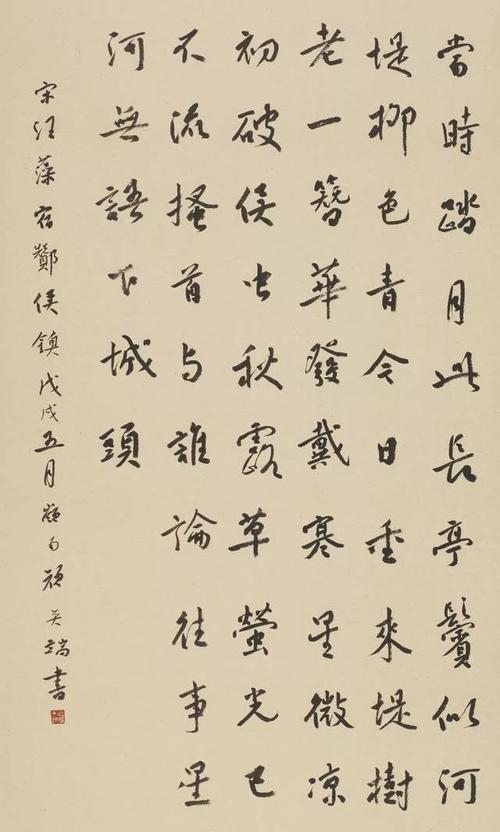 當時踏月此長亭鬢似河
堤柳色青今日重來堤樹
老一簪華發戴寒星微涼
初破侯虫秋露草螢光已
不流搔首与誰論往事星
河無語下城頭
宋汪藻宿酇侯鎮戊戌五月書